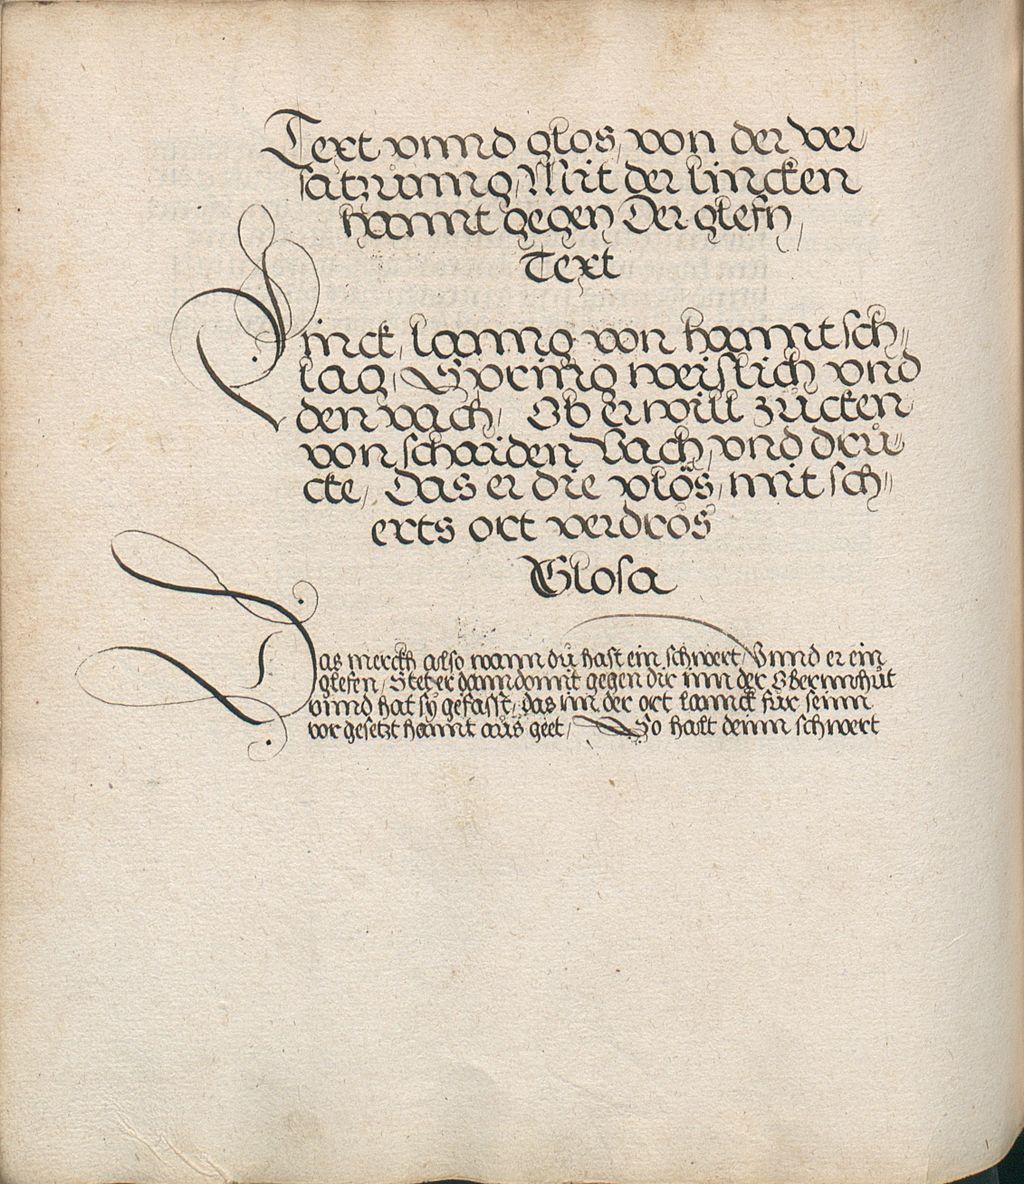 Text vnnd glos, von der ver,
satzůnng, Mit der lincken
hannt gegen Der glefn,
Text
Linck, lanng von hannt sch,,
lag, Spring weislich vnd
den vach, Ob er will zůcken
von schaiden Vach, vnd drů,,
cke, Das er die plös, mit sch,,
erts ort verdros
Glosa
Das merckh also wann dů hast ein schwert, Vnnd er ein
glefen, Stet er dann domit gegen dir inn der Obernnhůt
vnnd hat sÿ gefasst, das im der ort lannck für seinn
vor gesetzt hannt aůs geet, So halt deinn schwert